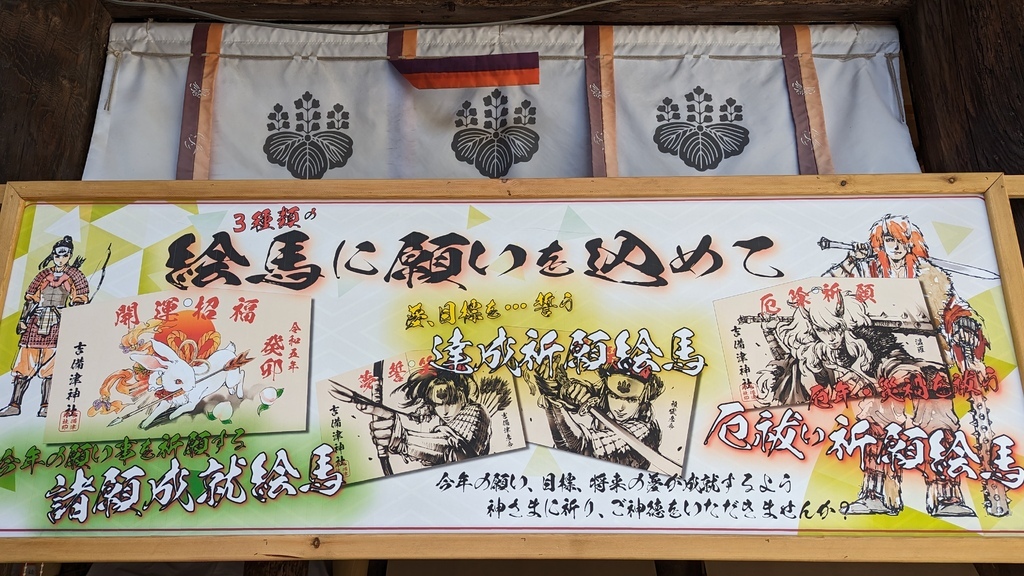 3種類の
絵馬に願いを込めて
夢、目標を…誓う
達成祈願絵馬
開運招福
令和五年
癸卯
吉備津神社
今年の願い事を祈願する
諸願成就絵馬
吉備津神社
厄除祈願
吉備津神社
厄祓い祈願絵馬
今年の願い、目標、将来の夢が成就するよう
神さまに祈り、ご神徳をいただきませんか?